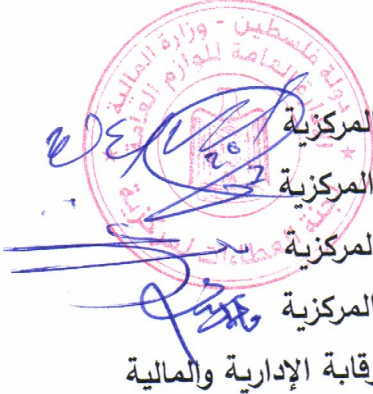 دولة فلسطين - وزارة المالية
الإدارة العامة للوازم العامة
لجنة العطاءات المركزية
لمركزية
المركزية
لمركزية
المركزية
رقابة الإدارية والمالية